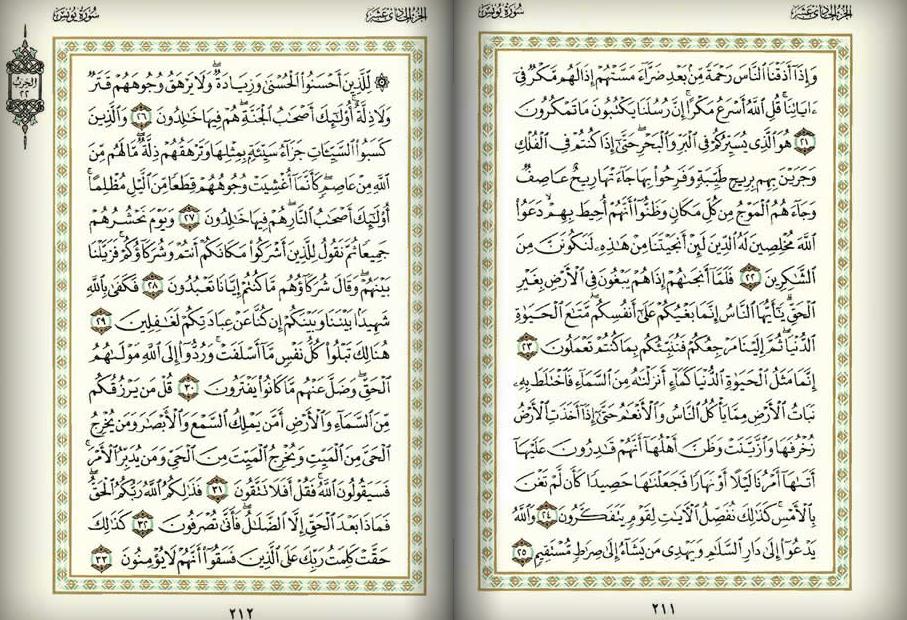 الجزء الحادي عشر
سورة يونس
وَإِذَآ أَذَقْنَا ٱلنَّاسَ رَحْمَةً مِّنۢ بَعْدِ ضَرَّآءَ مَسَّتْهُمْ إِذَا لَهُم مَّكْرٌ فِىٓ
ءَايَاتِنَا ۚ قُلِ ٱللَّهُ أَسْرَعُ مَكْرًا ۚ إِنَّ رُسُلَنَا يَكْتُبُونَ مَا تَمْكُرُونَ
٢١ هُوَ ٱلَّذِى يُسَيِّرُكُمْ فِى ٱلْبَرِّ وَٱلْبَحْرِ ۖ حَتَّىٰٓ إِذَا كُنتُمْ فِى ٱلْفُلْكِ
وَجَرَيْنَ بِهِم بِرِيحٍ طَيِّبَةٍ وَفَرِحُوا۟ بِهَا جَآءَتْهَا رِيحٌ عَاصِفٌ
وَجَآءَهُمُ ٱلْمَوْجُ مِن كُلِّ مَكَانٍ وَظَنُّوٓا۟ أَنَّهُمْ أُحِيطَ بِهِمْ ۙ دَعَوُا۟
ٱللَّهَ مُخْلِصِينَ لَهُ ٱلدِّينَ لَئِنْ أَنجَيْتَنَا مِنْ هَٰذِهِۦ لَنَكُونَنَّ مِنَ
ٱلشَّٰكِرِينَ ٢٢ فَلَمَّآ أَنجَىٰهُمْ إِذَا هُمْ يَبْغُونَ فِى ٱلْأَرْضِ بِغَيْرِ
ٱلْحَقِّ ۗ يَٰٓأَيُّهَا ٱلنَّاسُ إِنَّمَا بَغْيُكُمْ عَلَىٰٓ أَنفُسِكُم ۖ مَّتَٰعَ ٱلْحَيَوٰةِ
ٱلدُّنْيَا ۖ ثُمَّ إِلَيْنَا مَرْجِعُكُمْ فَنُنَبِّئُكُم بِمَا كُنتُمْ تَعْمَلُونَ ٢٣
إِنَّمَا مَثَلُ ٱلْحَيَوٰةِ ٱلدُّنْيَا كَمَآءٍ أَنزَلْنَٰهُ مِنَ ٱلسَّمَآءِ فَٱخْتَلَطَ بِهِۦ
نَبَاتُ ٱلْأَرْضِ مِمَّا يَأْكُلُ ٱلنَّاسُ وَٱلْأَنْعَٰمُ حَتَّىٰٓ إِذَآ أَخَذَتِ ٱلْأَرْضُ
زُخْرُفَهَا وَٱزَّيَّنَتْ وَظَنَّ أَهْلُهَآ أَنَّهُمْ قَٰدِرُونَ عَلَيْهَآ
أَتَىٰهَآ أَمْرُنَا لَيْلًا أَوْ نَهَارًا فَجَعَلْنَٰهَا حَصِيدًا كَأَن لَّمْ تَغْنَ
بِٱلْأَمْسِ ۚ كَذَٰلِكَ نُفَصِّلُ ٱلْءَايَٰتِ لِقَوْمٍ يَتَفَكَّرُونَ ٢٤ وَٱللَّهُ
يَدْعُوٓا۟ إِلَىٰ دَارِ ٱلسَّلَٰمِ وَيَهْدِى مَن يَشَآءُ إِلَىٰ صِرَٰطٍ مُّسْتَقِيمٍ ٢٥
٢١١
الجزء الحادي عشر
سورة يونس
الحزب
٢٢
۞ لِّلَّذِينَ أَحْسَنُوا۟ ٱلْحُسْنَىٰ وَزِيَادَةٌ ۖ وَلَا يَرْهَقُ وُجُوهَهُمْ قَتَرٌ
وَلَا ذِلَّةٌ ۚ أُو۟لَٰٓئِكَ أَصْحَٰبُ ٱلْجَنَّةِ ۖ هُمْ فِيهَا خَٰلِدُونَ ٢٦ وَٱلَّذِينَ
كَسَبُوا۟ ٱلسَّيِّـَٔاتِ جَزَآءُ سَيِّئَةٍۭ بِمِثْلِهَا وَتَرْهَقُهُمْ ذِلَّةٌ ۖ مَّا لَهُم مِّنَ
ٱللَّهِ مِنْ عَاصِمٍ ۖ كَأَنَّمَآ أُغْشِيَتْ وُجُوهُهُمْ قِطَعًا مِّنَ ٱلَّيْلِ مُظْلِمًا ۚ
أُو۟لَٰٓئِكَ أَصْحَٰبُ ٱلنَّارِ ۖ هُمْ فِيهَا خَٰلِدُونَ ٢٧ وَيَوْمَ نَحْشُرُهُمْ
جَمِيعًا ثُمَّ نَقُولُ لِلَّذِينَ أَشْرَكُوا۟ مَكَانَكُمْ أَنتُمْ وَشُرَكَآؤُكُمْ ۚ فَزَيَّلْنَا
بَيْنَهُمْ ۖ وَقَالَ شُرَكَآؤُهُم مَّا كُنتُمْ إِيَّانَا تَعْبُدُونَ ٢٨ فَكَفَىٰ بِٱللَّهِ
شَهِيدًۢا بَيْنَنَا وَبَيْنَكُمْ إِن كُنَّا عَنْ عِبَادَتِكُمْ لَغَٰفِلِينَ ٢٩
هُنَالِكَ تَبْلُوا۟ كُلُّ نَفْسٍ مَّآ أَسْلَفَتْ ۚ وَرُدُّوٓا۟ إِلَى ٱللَّهِ مَوْلَىٰهُمُ
ٱلْحَقِّ ۖ وَضَلَّ عَنْهُم مَّا كَانُوا۟ يَفْتَرُونَ ٣٠ قُلْ مَن يَرْزُقُكُم
مِّنَ ٱلسَّمَآءِ وَٱلْأَرْضِ أَمَّن يَمْلِكُ ٱلسَّمْعَ وَٱلْأَبْصَٰرَ وَمَن يُخْرِجُ
ٱلْحَىَّ مِنَ ٱلْمَيِّتِ وَيُخْرِجُ ٱلْمَيِّتَ مِنَ ٱلْحَىِّ وَمَن يُدَبِّرُ ٱلْأَمْرَ ۚ
فَسَيَقُولُونَ ٱللَّهُ ۚ فَقُلْ أَفَلَا تَتَّقُونَ ٣١ فَذَٰلِكُمُ ٱللَّهُ رَبُّكُمُ ٱلْحَقُّ ۖ
فَمَاذَا بَعْدَ ٱلْحَقِّ إِلَّا ٱلضَّلَٰلُ ۖ فَأَنَّىٰ تُصْرَفُونَ ٣٢ كَذَٰلِكَ
حَقَّتْ كَلِمَتُ رَبِّكَ عَلَى ٱلَّذِينَ فَسَقُوٓا۟ أَنَّهُمْ لَا يُؤْمِنُونَ ٣٣
٢١٢